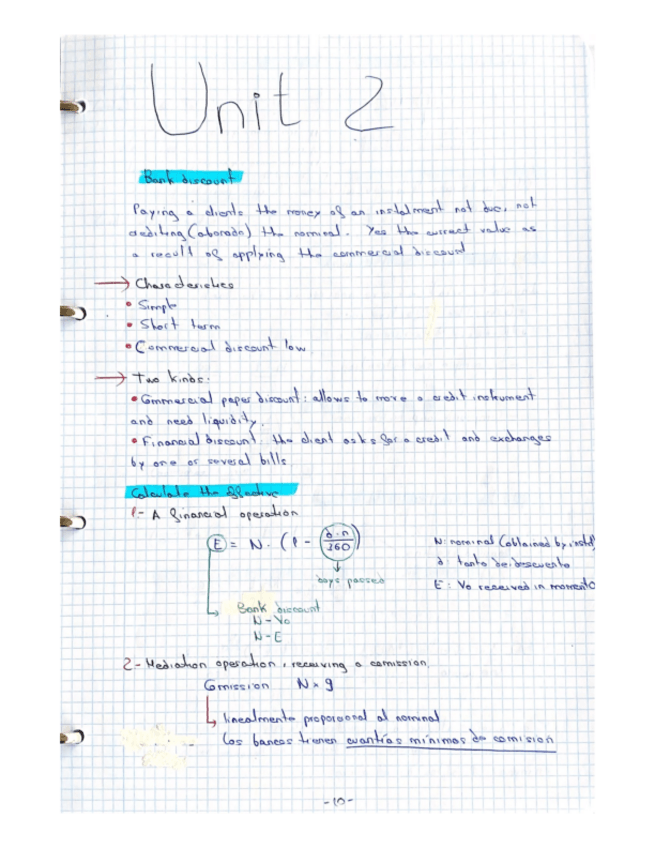 Unit 2
Bank discount
Paying a clients the money of an instalment not due, not
crediting (abonado) the nominal. Yes the current value as
a result of applying the commercial discount
→ Characteristics
• Simple
• Short term
• Commercial discount low
→ Two kinds:
• Commercial paper discount: allows to move a credit instrument
and need liquidity.
• Financial discount: the client asks for a credit and exchanges
by one or several bills
Calculate the effective
1- A financial operation
E = N · (1 - (d·n / 360))
days passed
N: nominal (obtained by instal
d: tanto de descuento
E: Vo received in momento
Bank discount
N-Vo
N-E
2- Mediation operation, receiving a comission
Comission N × g
linealmente proporcional al nominal
Los bancos tienen cuantías mínimas de comisión
-10-